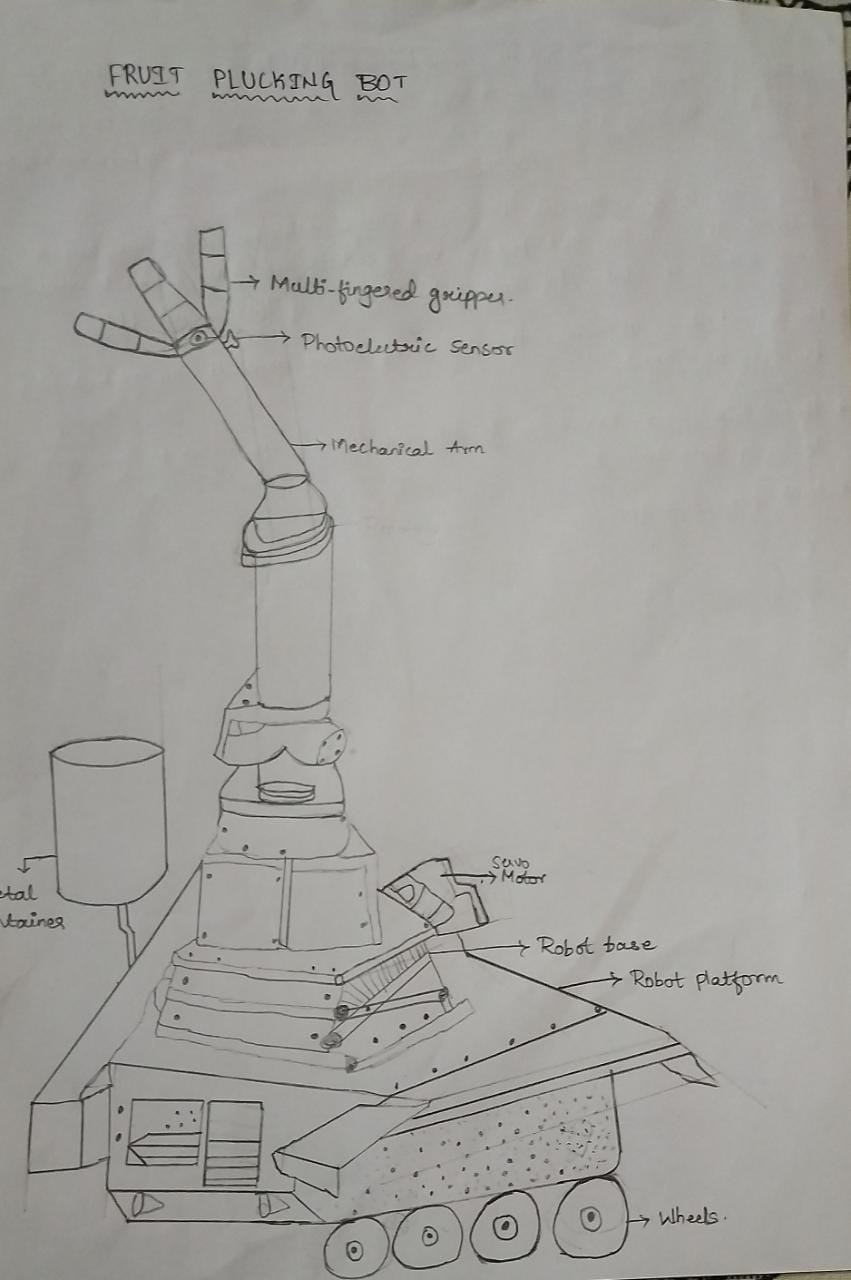 FRUIT PLUCKING BOT
Multi-fingered gripper.
Photoelectric sensor
Mechanical Arm
Servo
Motor
etal
ntainer
Robot base
Robot platform
Wheels.